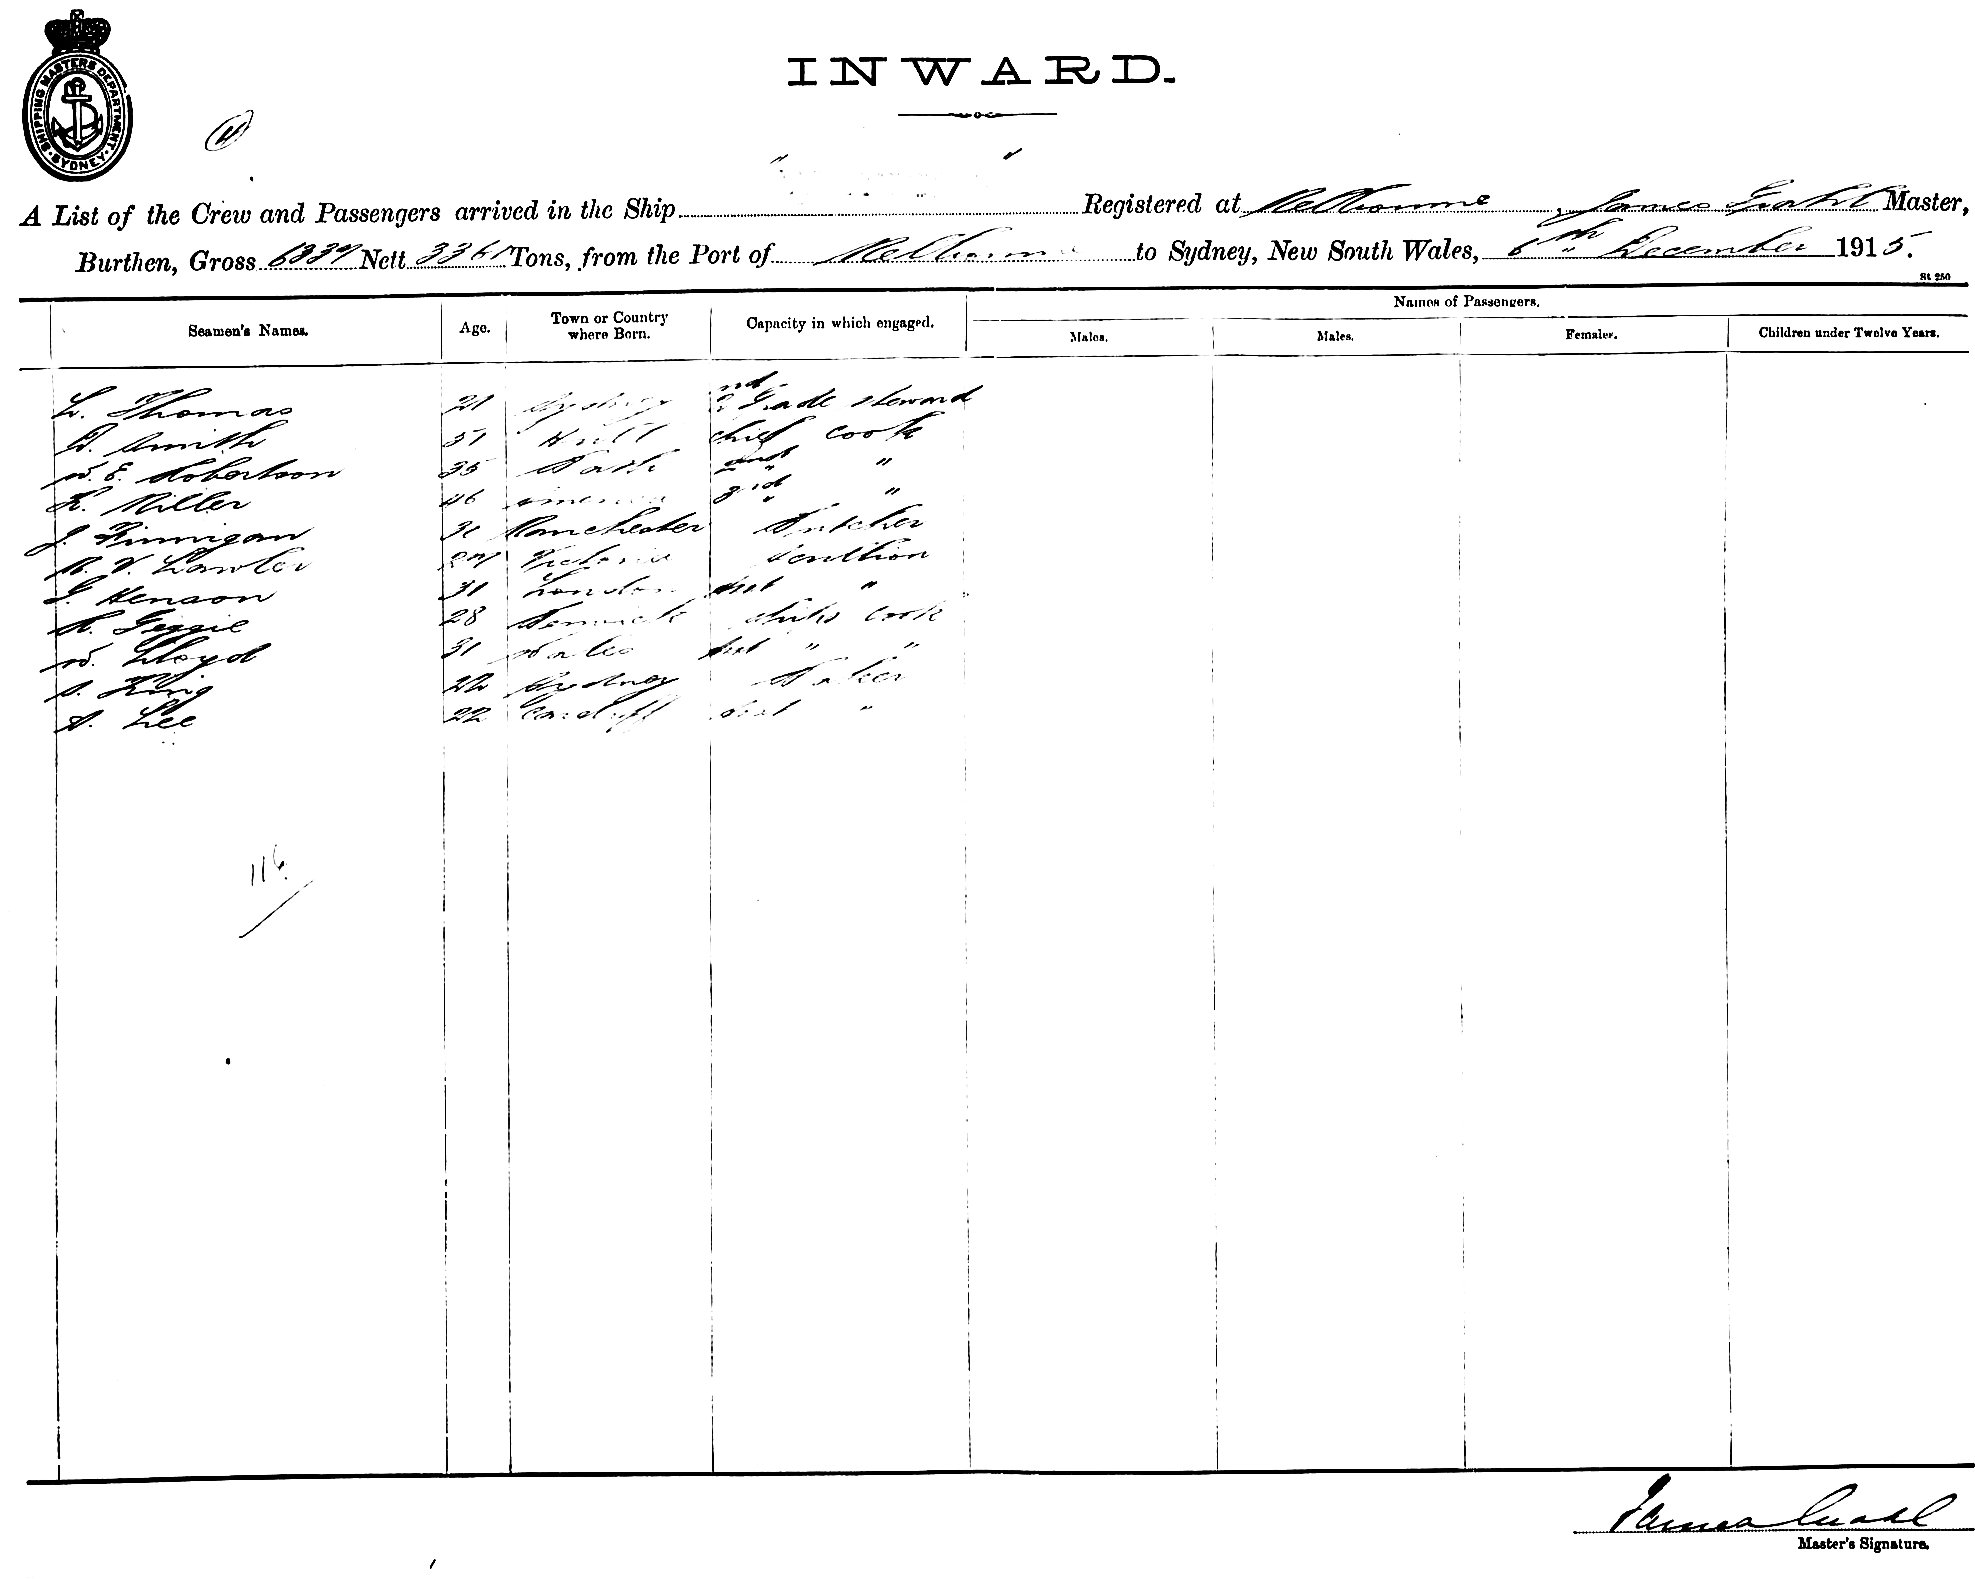 SHIPPING MASTERS DEPARTMENT · SYDNEY ·
INWARD.
A List of the Crew and Passengers arrived in the Ship " " Registered at Melbourne, James Master,
Burthen, Gross 6339 Nett 3361 Tons, from the Port of Melbourne to Sydney, New South Wales, 6th December 1915.
St 250
Names of Passengers.
Seamen's Names. Age. Town or Country where Born. Capacity in which engaged. Males. Males. Females. Children under Twelve Years.
L. Thomas 21 Sydney 2nd Grade steward
Smith 51 Hull chief cook
W. E. Robertson 35 2nd " "
Miller 46 America 3rd " "
J. Finnigan 31 Manchester Butcher
V. Lawler Victoria scullion
G. Henson 31 London asst "
28 ships cook
W. Lloyd 31 Wales asst " "
S. King 22 Sydney Baker
A. Lee 22 Cardiff asst "
116
James
Master's Signature.